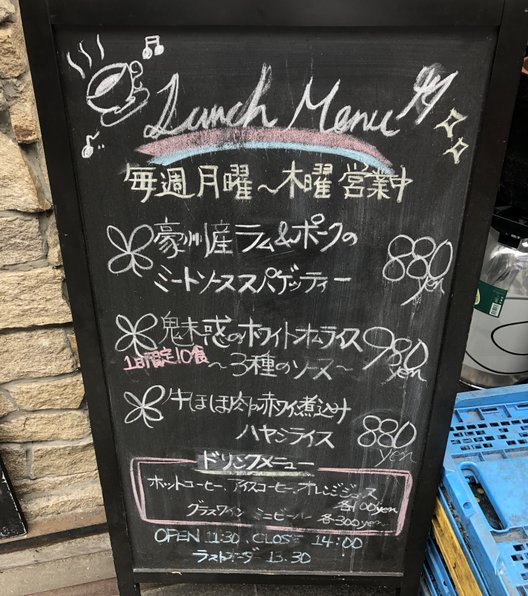 Lunch Menu
毎週月曜〜木曜営業中
豪州産ラム&ポークの
ミートソーススパゲッティー
880yen
魅惑のホワイトオムライス
1日限定10食 〜3種のソース〜
980yen
牛ほほ肉の赤ワイン煮込み
ハヤシライス
880yen
ドリンクメニュー
ホットコーヒー、アイスコーヒー、オレンジジュース
各100yen
グラスワイン ミニビール 各300yen
OPEN 11:30 CLOSE 14:00
ラストオーダー 13:30